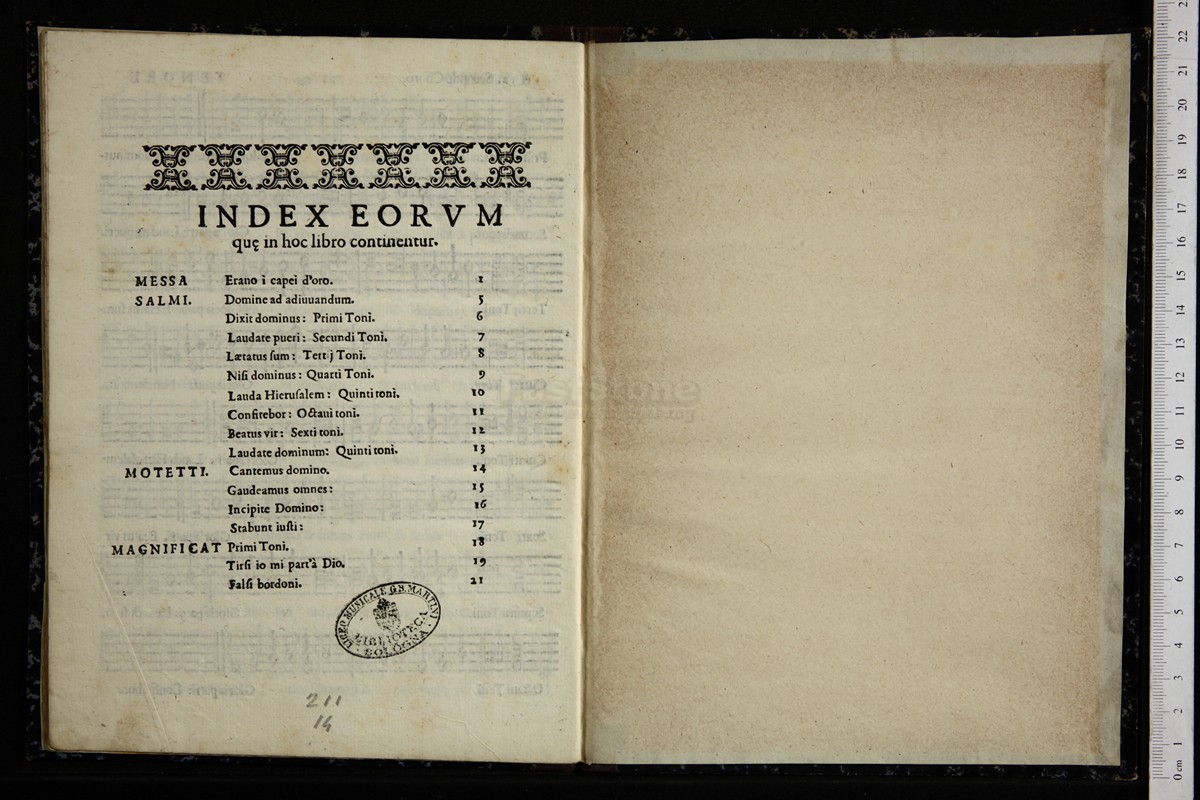 INDEX EORVM
quę in hoc libro continentur.
MESSA Erano i capei d'oro. 1
SALMI. Domine ad adiuuandum. 5
Dixit dominus: Primi Toni. 6
Laudate pueri: Secundi Toni. 7
Lætatus ſum: Tertij Toni. 8
Niſi dominus: Quarti Toni. 9
Lauda Hieruſalem: Quinti toni. 10
Confitebor: Octaui toni. 11
Beatus vir: Sexti toni. 12
Laudate dominum: Quinti toni. 13
MOTETTI. Cantemus domino. 14
Gaudeamus omnes: 15
Incipite Domino: 16
Stabunt iuſti: 17
MAGNIFICAT Primi Toni. 18
Tirſi io mi part'à Dio. 19
Falſi bordoni. 21
LICEO MUSICALE G.B. MARTINI
BIBLIOTECA
BOLOGNA
211
14
0 cm 1 2 3 4 5 6 7 8 9 10 11 12 13 14 15 16 17 18 19 20 21 22